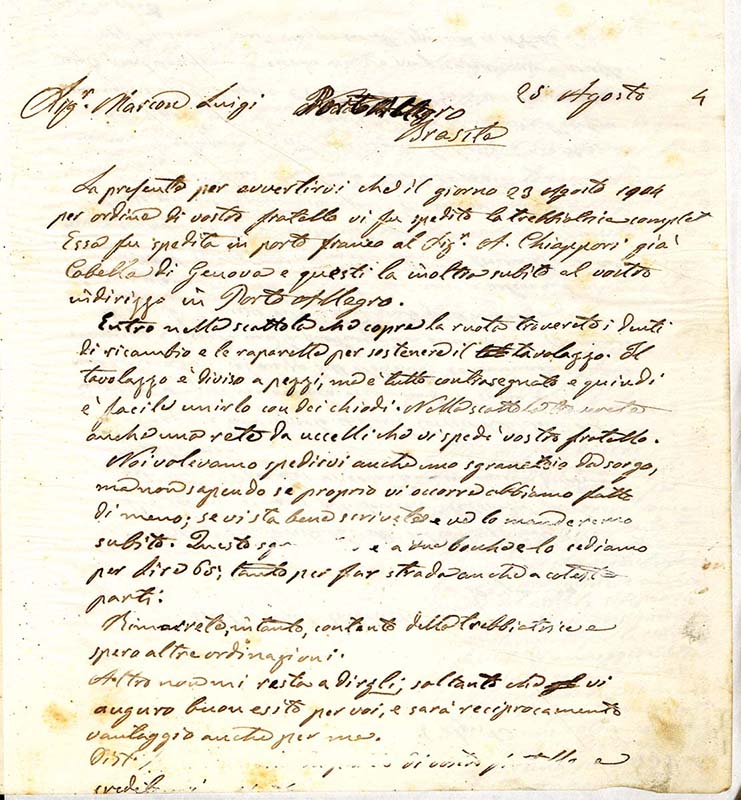 Sigr. Marcon Luigi Porto Allegro 28 Agosto 4
Brasile
La presente per avvertirvi che il giorno 23 agosto 1904
per ordine di vostro fratello vi fu spedito la trebbiatrice complet
Essa fu spedita in porto franco al Sigr. A. Chiappori già
Cabella di Genova e questi la inoltra subito al vostro
indirizzo in Porto Allegro.
Entro nella scattola che copre la ruota troverete i denti
di ricambio e le raparelle per sostenere il tavolazzo. Il
tavolazzo è diviso a pezzi, ma è tutto contrasegnato e quindi
è facile unirlo con dei chiodi. Nella scattola
anche una rete da uccelli che vi spedì vostro fratello.
Noi volevamo spedirvi anche uno sgranatoio da sorgo,
ma non sapendo se proprio vi occorre abbiamo fatto
di meno; se vi sta bene scrivete e ve lo manderemo
subito. Questo e a due bocche e lo cediamo
per Lire 65; tanto per far strada anche a coteste
parti.
Rimarrete, intanto, contento della trebbiatrice e
spero altre ordinazioni.
Altro non mi resta a dirgli; soltanto che vi
auguro buon esito per voi, e sarà reciprocamente
vantaggio anche per me.
di vostro fratello e